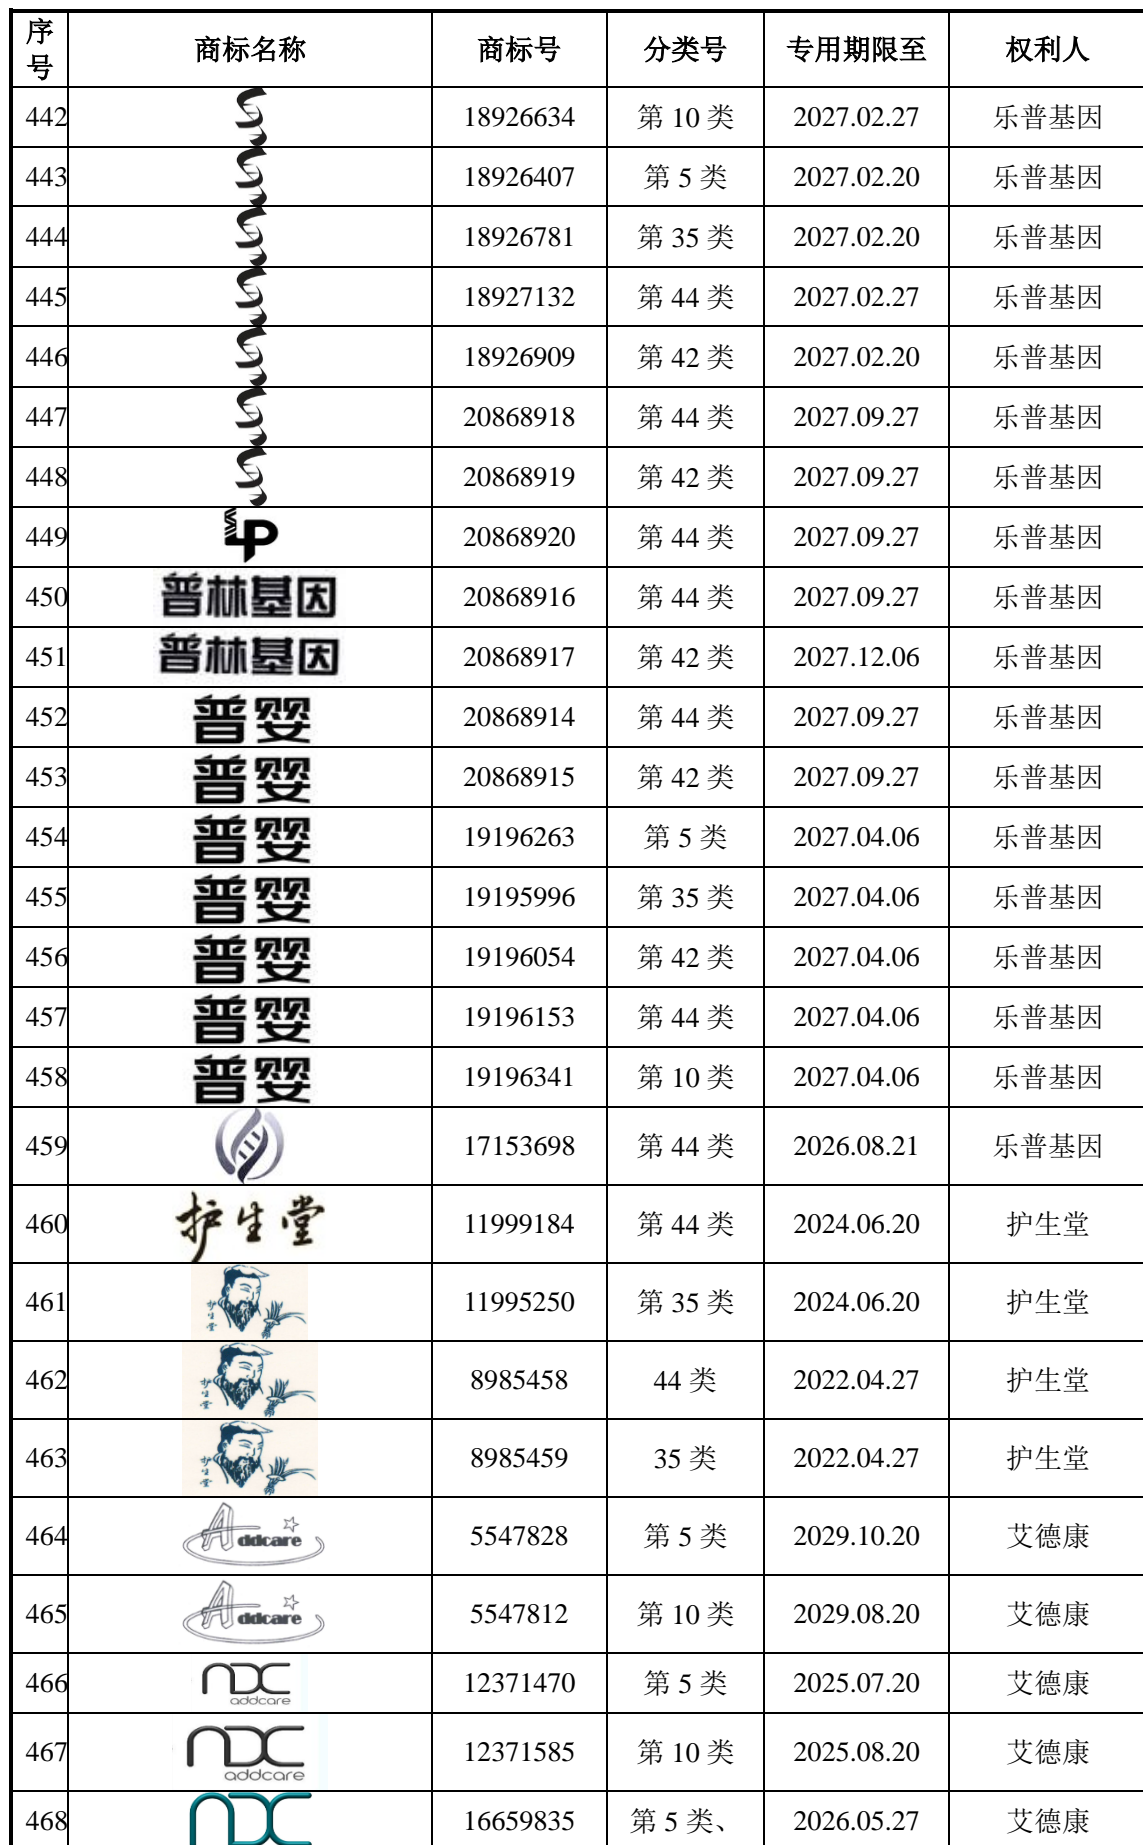 序号 商标名称 商标号 分类号 专用期限至 权利人
442 18926634 第 10 类 2027.02.27 乐普基因
443 18926407 第 5 类 2027.02.20 乐普基因
444 18926781 第 35 类 2027.02.20 乐普基因
445 18927132 第 44 类 2027.02.27 乐普基因
446 18926909 第 42 类 2027.02.20 乐普基因
447 20868918 第 44 类 2027.09.27 乐普基因
448 20868919 第 42 类 2027.09.27 乐普基因
449 LP 20868920 第 44 类 2027.09.27 乐普基因
450 普林基因 20868916 第 44 类 2027.09.27 乐普基因
451 普林基因 20868917 第 42 类 2027.12.06 乐普基因
452 普婴 20868914 第 44 类 2027.09.27 乐普基因
453 普婴 20868915 第 42 类 2027.09.27 乐普基因
454 普婴 19196263 第 5 类 2027.04.06 乐普基因
455 普婴 19195996 第 35 类 2027.04.06 乐普基因
456 普婴 19196054 第 42 类 2027.04.06 乐普基因
457 普婴 19196153 第 44 类 2027.04.06 乐普基因
458 普婴 19196341 第 10 类 2027.04.06 乐普基因
459 17153698 第 44 类 2026.08.21 乐普基因
460 护生堂 11999184 第 44 类 2024.06.20 护生堂
461 护生堂 11995250 第 35 类 2024.06.20 护生堂
462 护生堂 8985458 44 类 2022.04.27 护生堂
463 护生堂 8985459 35 类 2022.04.27 护生堂
464 Addcare 5547828 第 5 类 2029.10.20 艾德康
465 Addcare 5547812 第 10 类 2029.08.20 艾德康
466 ADC addcare 12371470 第 5 类 2025.07.20 艾德康
467 ADC addcare 12371585 第 10 类 2025.08.20 艾德康
468 ADC 16659835 第 5 类、 2026.05.27 艾德康